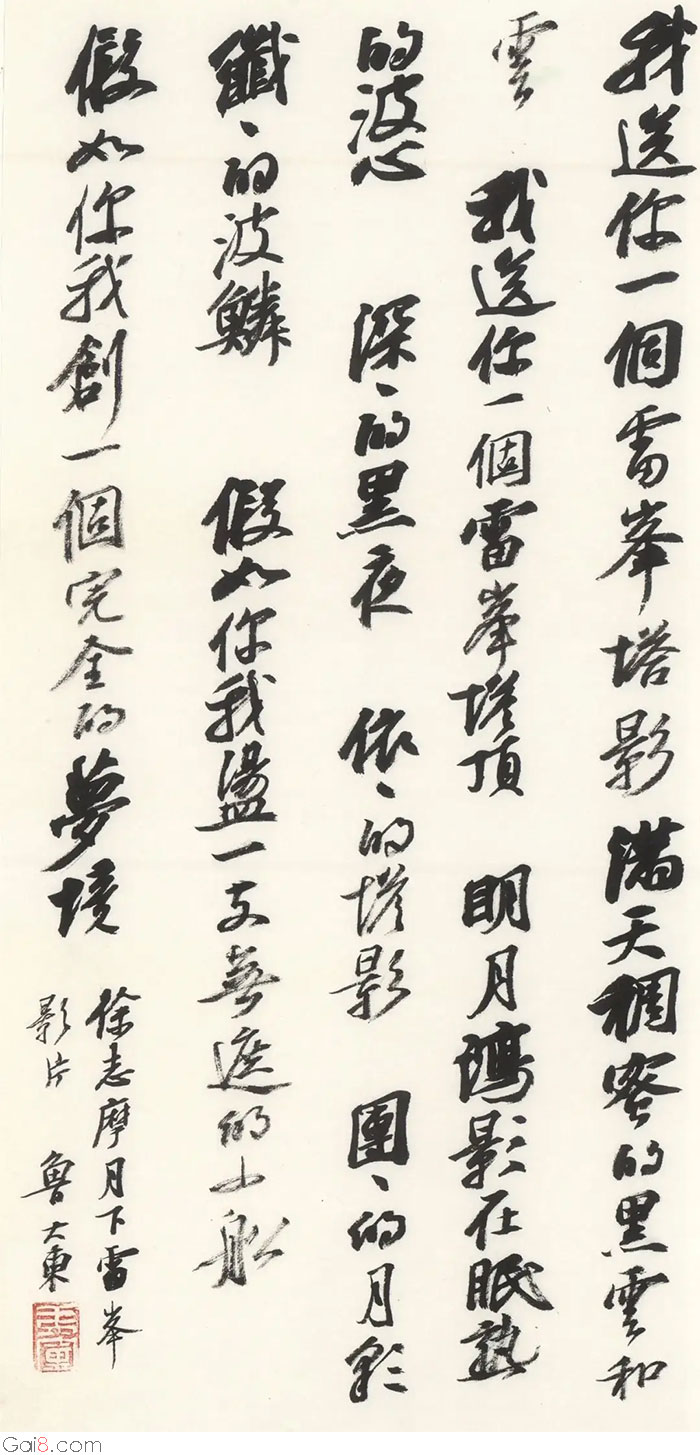 我送你一個雷峯塔影 滿天稠密的黑雲和
雲 我送你一個雷峯塔頂 明月瀉影在眠熟
的波心 深、的黑夜 依、的塔影 團、的月彩
纖、的波鱗 假如你我盪一支無遮的小船
假如你我創一個完全的夢境
徐志摩月下雷峯
影片 魯大東
Gai8.com